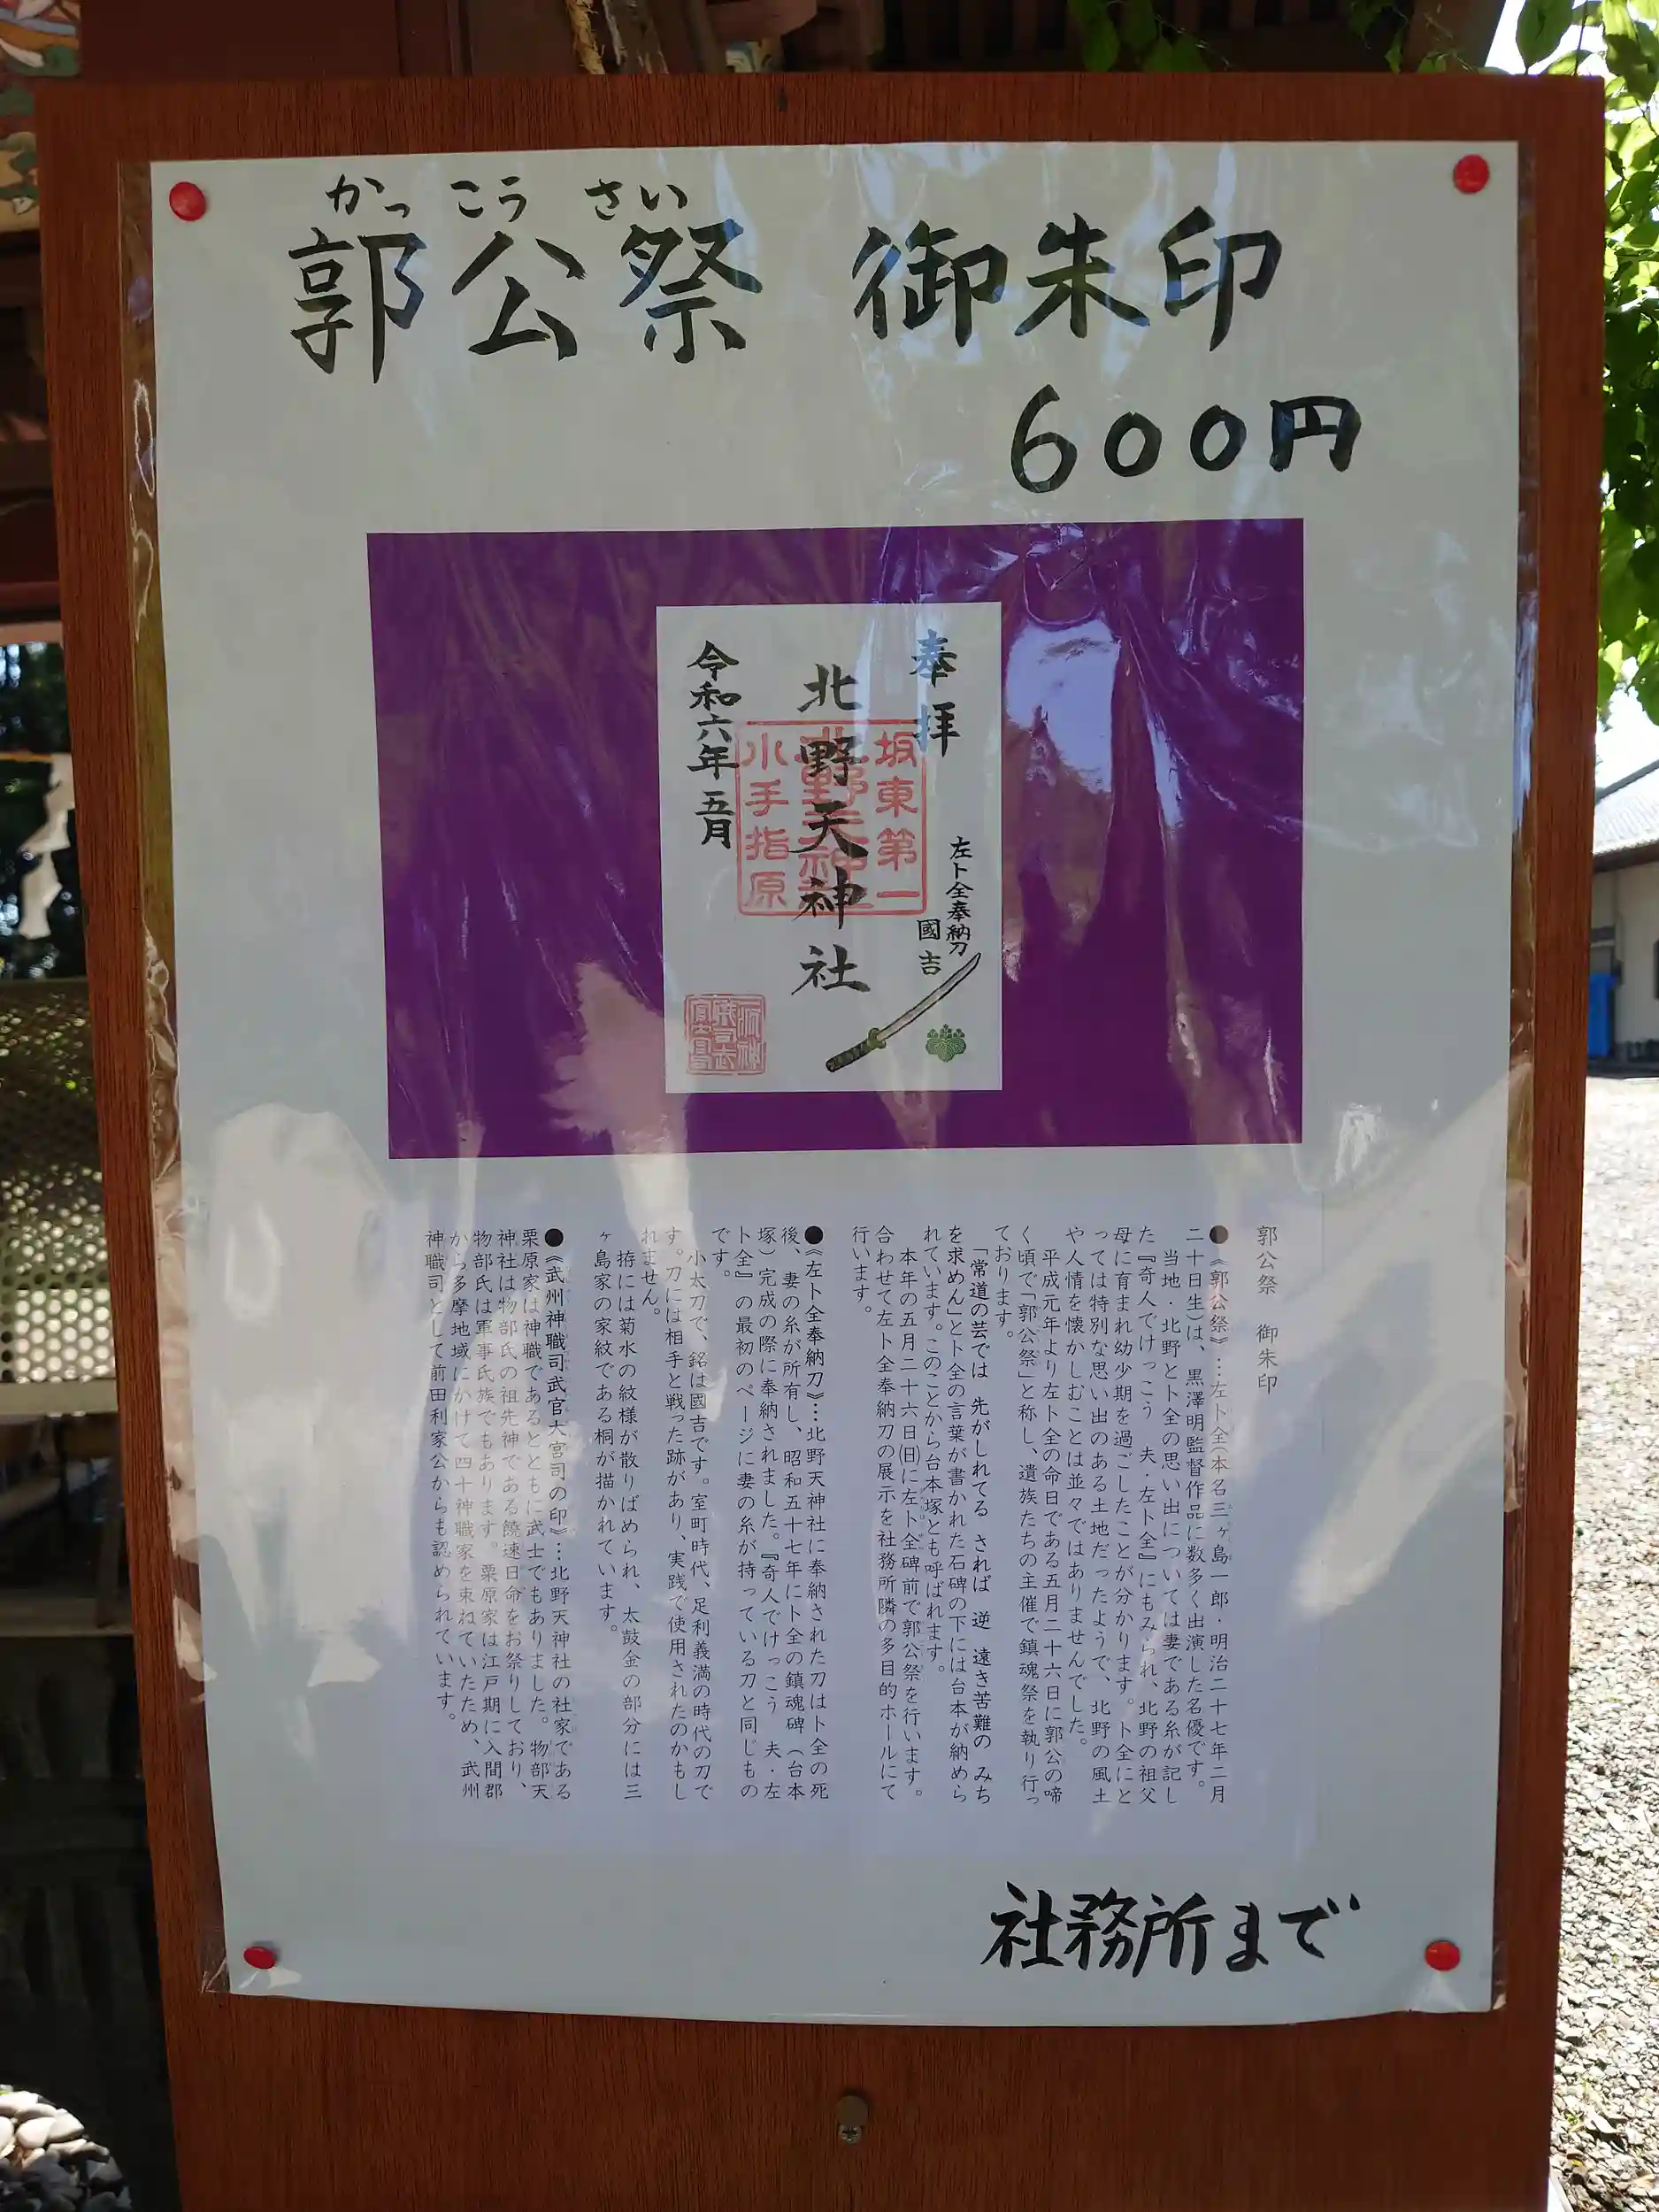 かっこうさい
郭公祭 御朱印
600円
奉拝
左卜全奉納刀
國吉
北野天神社
坂東第一
北野天神社
小手指原
令和六年五月
郭公祭 御朱印
●《郭公祭》…左卜全(本名三ヶ島一郎・明治二十七年二月
二十日生)は、黒澤明監督作品に数多く出演した名優です。
当地・北野と卜全の思い出については妻である糸が記し
た『奇人でけっこう 夫・左卜全』にもみられ、北野の祖父
母に育まれ幼少期を過ごしたことが分かります。卜全にと
っては特別な思い出のある土地だったようで、北野の風土
や人情を懐かしむことは並々ではありませんでした。
平成元年より左卜全の命日である五月二十六日に郭公の啼
く頃で「郭公祭」と称し、遺族たちの主催で鎮魂祭を執り行っ
ております。
「常道の芸では 先がしれてる されば 逆 遠き苦難の みち
を求めん」と卜全の言葉が書かれた石碑の下には台本が納めら
れています。このことから台本塚とも呼ばれます。
本年の五月二十六日(日)に左卜全碑前で郭公祭を行います。
合わせて左卜全奉納刀の展示を社務所隣の多目的ホールにて
行います。
●《左卜全奉納刀》…北野天神社に奉納された刀は卜全の死
後、妻の糸が所有し、昭和五十七年に卜全の鎮魂碑(台本
塚)完成の際に奉納されました。『奇人でけっこう 夫・左
卜全』の最初のページに妻の糸が持っている刀と同じもの
です。
小太刀で、銘は國吉です。室町時代、足利義満の時代の刀で
す。刀には相手と戦った跡があり、実践で使用されたのかもし
れません。
拵には菊水の紋様が散りばめられ、太鼓金の部分には三
ヶ島家の家紋である桐が描かれています。
●《武州神職司武官大宮司の印》…北野天神社の社家である
栗原家は神職であるとともに武士でもありました。物部天
神社は物部氏の祖先神である饒速日命をお祭りしており、
物部氏は軍事氏族でもあります。栗原家は江戸期に入間郡
から多摩地域にかけて四十神職家を束ねていたため、武州
神職司として前田利家公からも認められています。
社務所まで